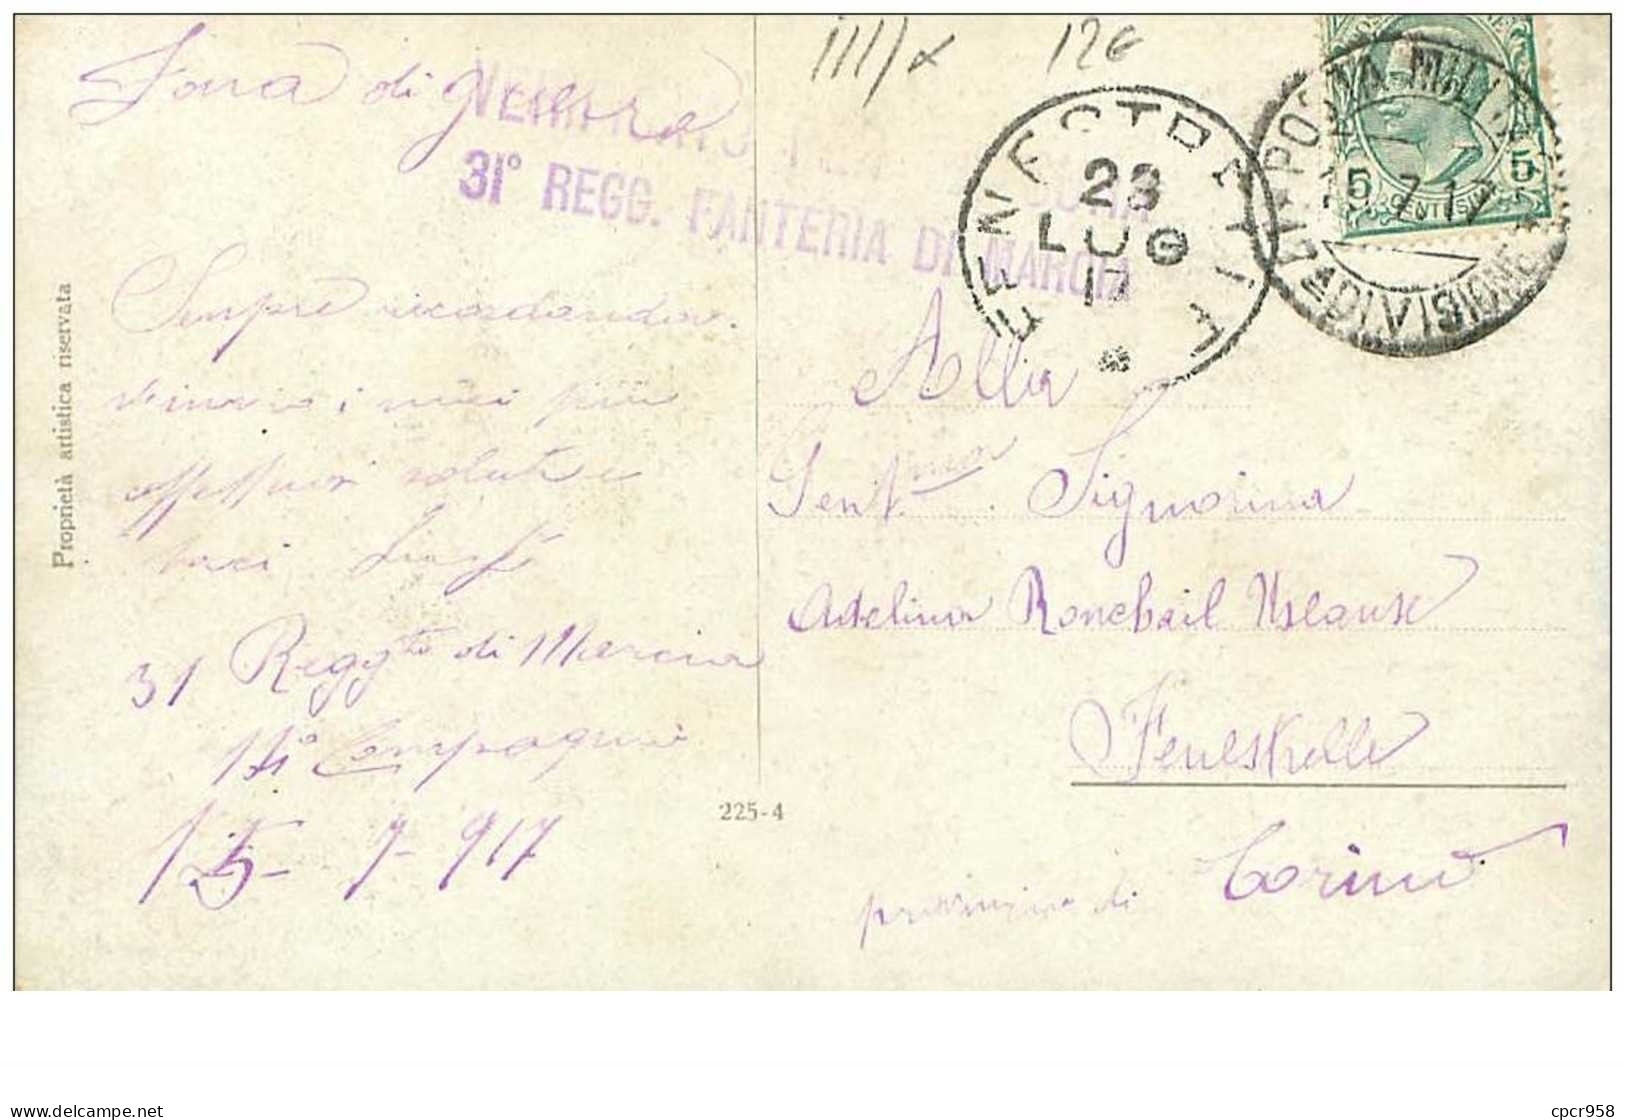 Zona di Guerra
VERIFICATO PER CENSURA
31° REGG. FANTERIA DI MARCIA
Sempre ricordandov.
i miei più
affettuosi saluti e
baci
31 Reggto di Marcia
11° Compagnia
15- 7- 917
Proprietà artistica riservata
225-4
12€
FENESTRELLE
23
LUG
17
POSTA MILITARE
7.17
DIVISIONE
5 5
CENTESIMI
Alla
Gentma Signorina
Adelina Ronchail
Fenestrelle
provincia di Torino
cpcr958